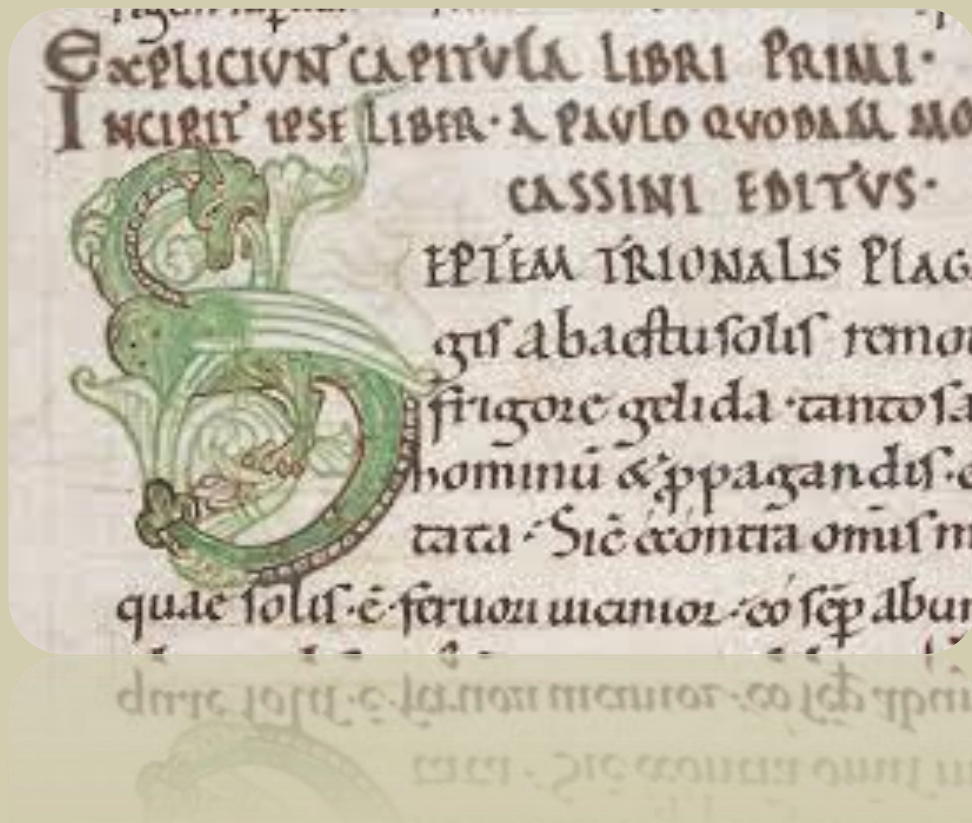 EXPLICIUNT CAPITULA LIBRI PRIMI·
INCIPIT IPSE LIBER· A PAULO QUODAM MO
CASSINI EDITUS·
SEPTEMTRIONALIS PLAG
gis ab aestu solis remo
frigore gelida · tanto sa
hominū & ꝓpagandis · c
tata · Sic econtra omīs m
quae solis · ē · feruori uicinior · eo sēꝑ abun